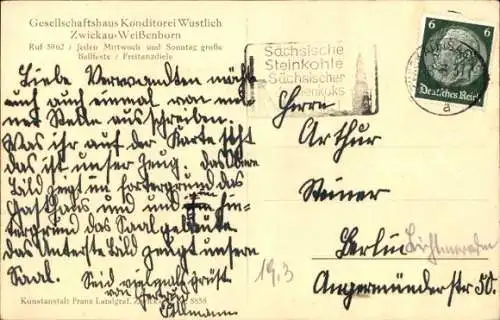 Gesellschaftshaus Konditorei Wustlich
Zwickau-Weißenborn
Ruf 5962 / Jeden Mittwoch und Sonntag große
Ballfeste / Freitanzdiele
Liebe Verwandten möchte
euch auch einmal von mei-
ner Stelle aus schreiben.
Was ihr auf der Karte seht
das ist unser Zeug. Das Obere
Bild zeigt im fortergrund das
Gasthaus und und im hin-
tergrund das Saal gebeute
das Unterste Bild zeigt unsern
Saal. Seid vielmals grüst
von Gertrud
Kunstanstalt Franz Landgraf, 8858
Sächsische
Steinkohle
Sächsischer
6 6
Deutsches Reich
a
Herrn
Arthur
Steiner
Berlin Lichtenraden
Angermünderstr 50.
19.3